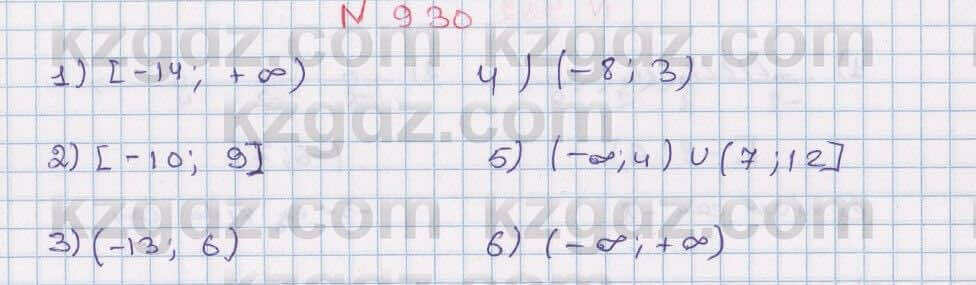 N 930
kzgdz.com kzgdz.com
1) [-14; +∞) 4) (-8; 3)
kzgdz.com
2) [-10; 9] 5) (-∞; 4) ∪ (7; 12]
kzgdz.com kzgdz.com
3) (-13; 6) 6) (-∞; +∞)